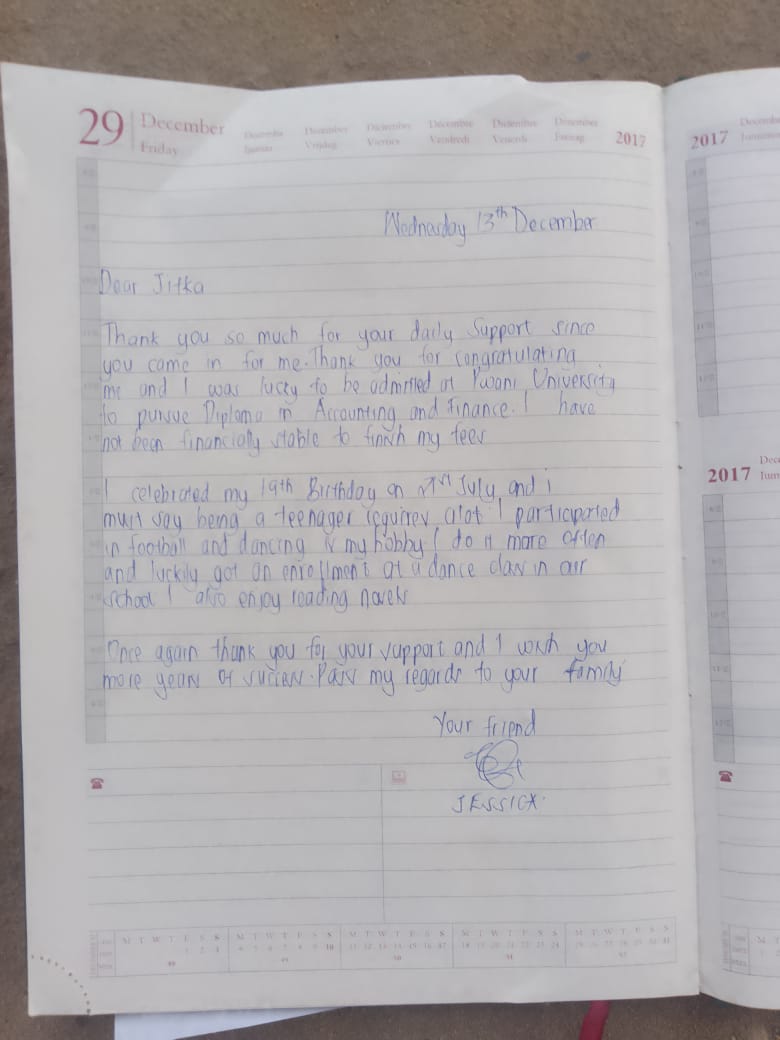 29 December
Friday
December December Diciembre Décembre Dicembre Dezember
Vrijdag Viernes Vendredi Venerdi Freitag
2017
Wednesday 13th December
Dear Jitka
Thank you so much for your daily support since
you came in for me. Thank you for congratulating
me and I was lucky to be admitted at Pwani University
to pursue Diploma in Accounting and Finance. I have
not been financially stable to finish my fees
I celebrated my 19th Birthday on 21st July, and i
must say being a teenager requires alot. I participated
in football and dancing is my hobby I do it more often
and luckily got an enrollment at a dance class in our
school I also enjoy reading novels
Once again thank you for your support and I wish you
more years of success. Pass my regards to your family
Your friend
JESSICA
2017
2017